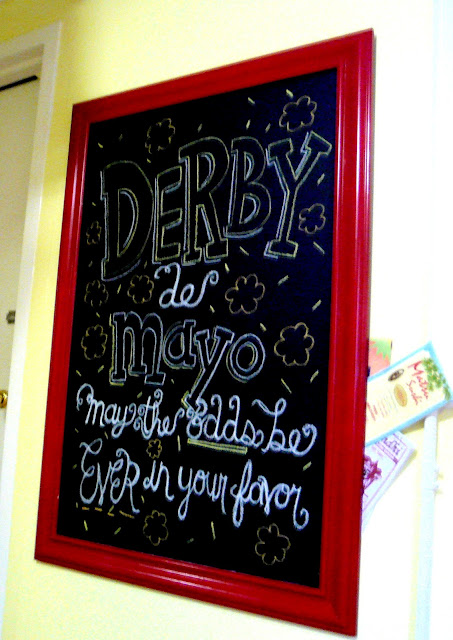 DERBY
de
mayo
may the odds be
EVER in your favor